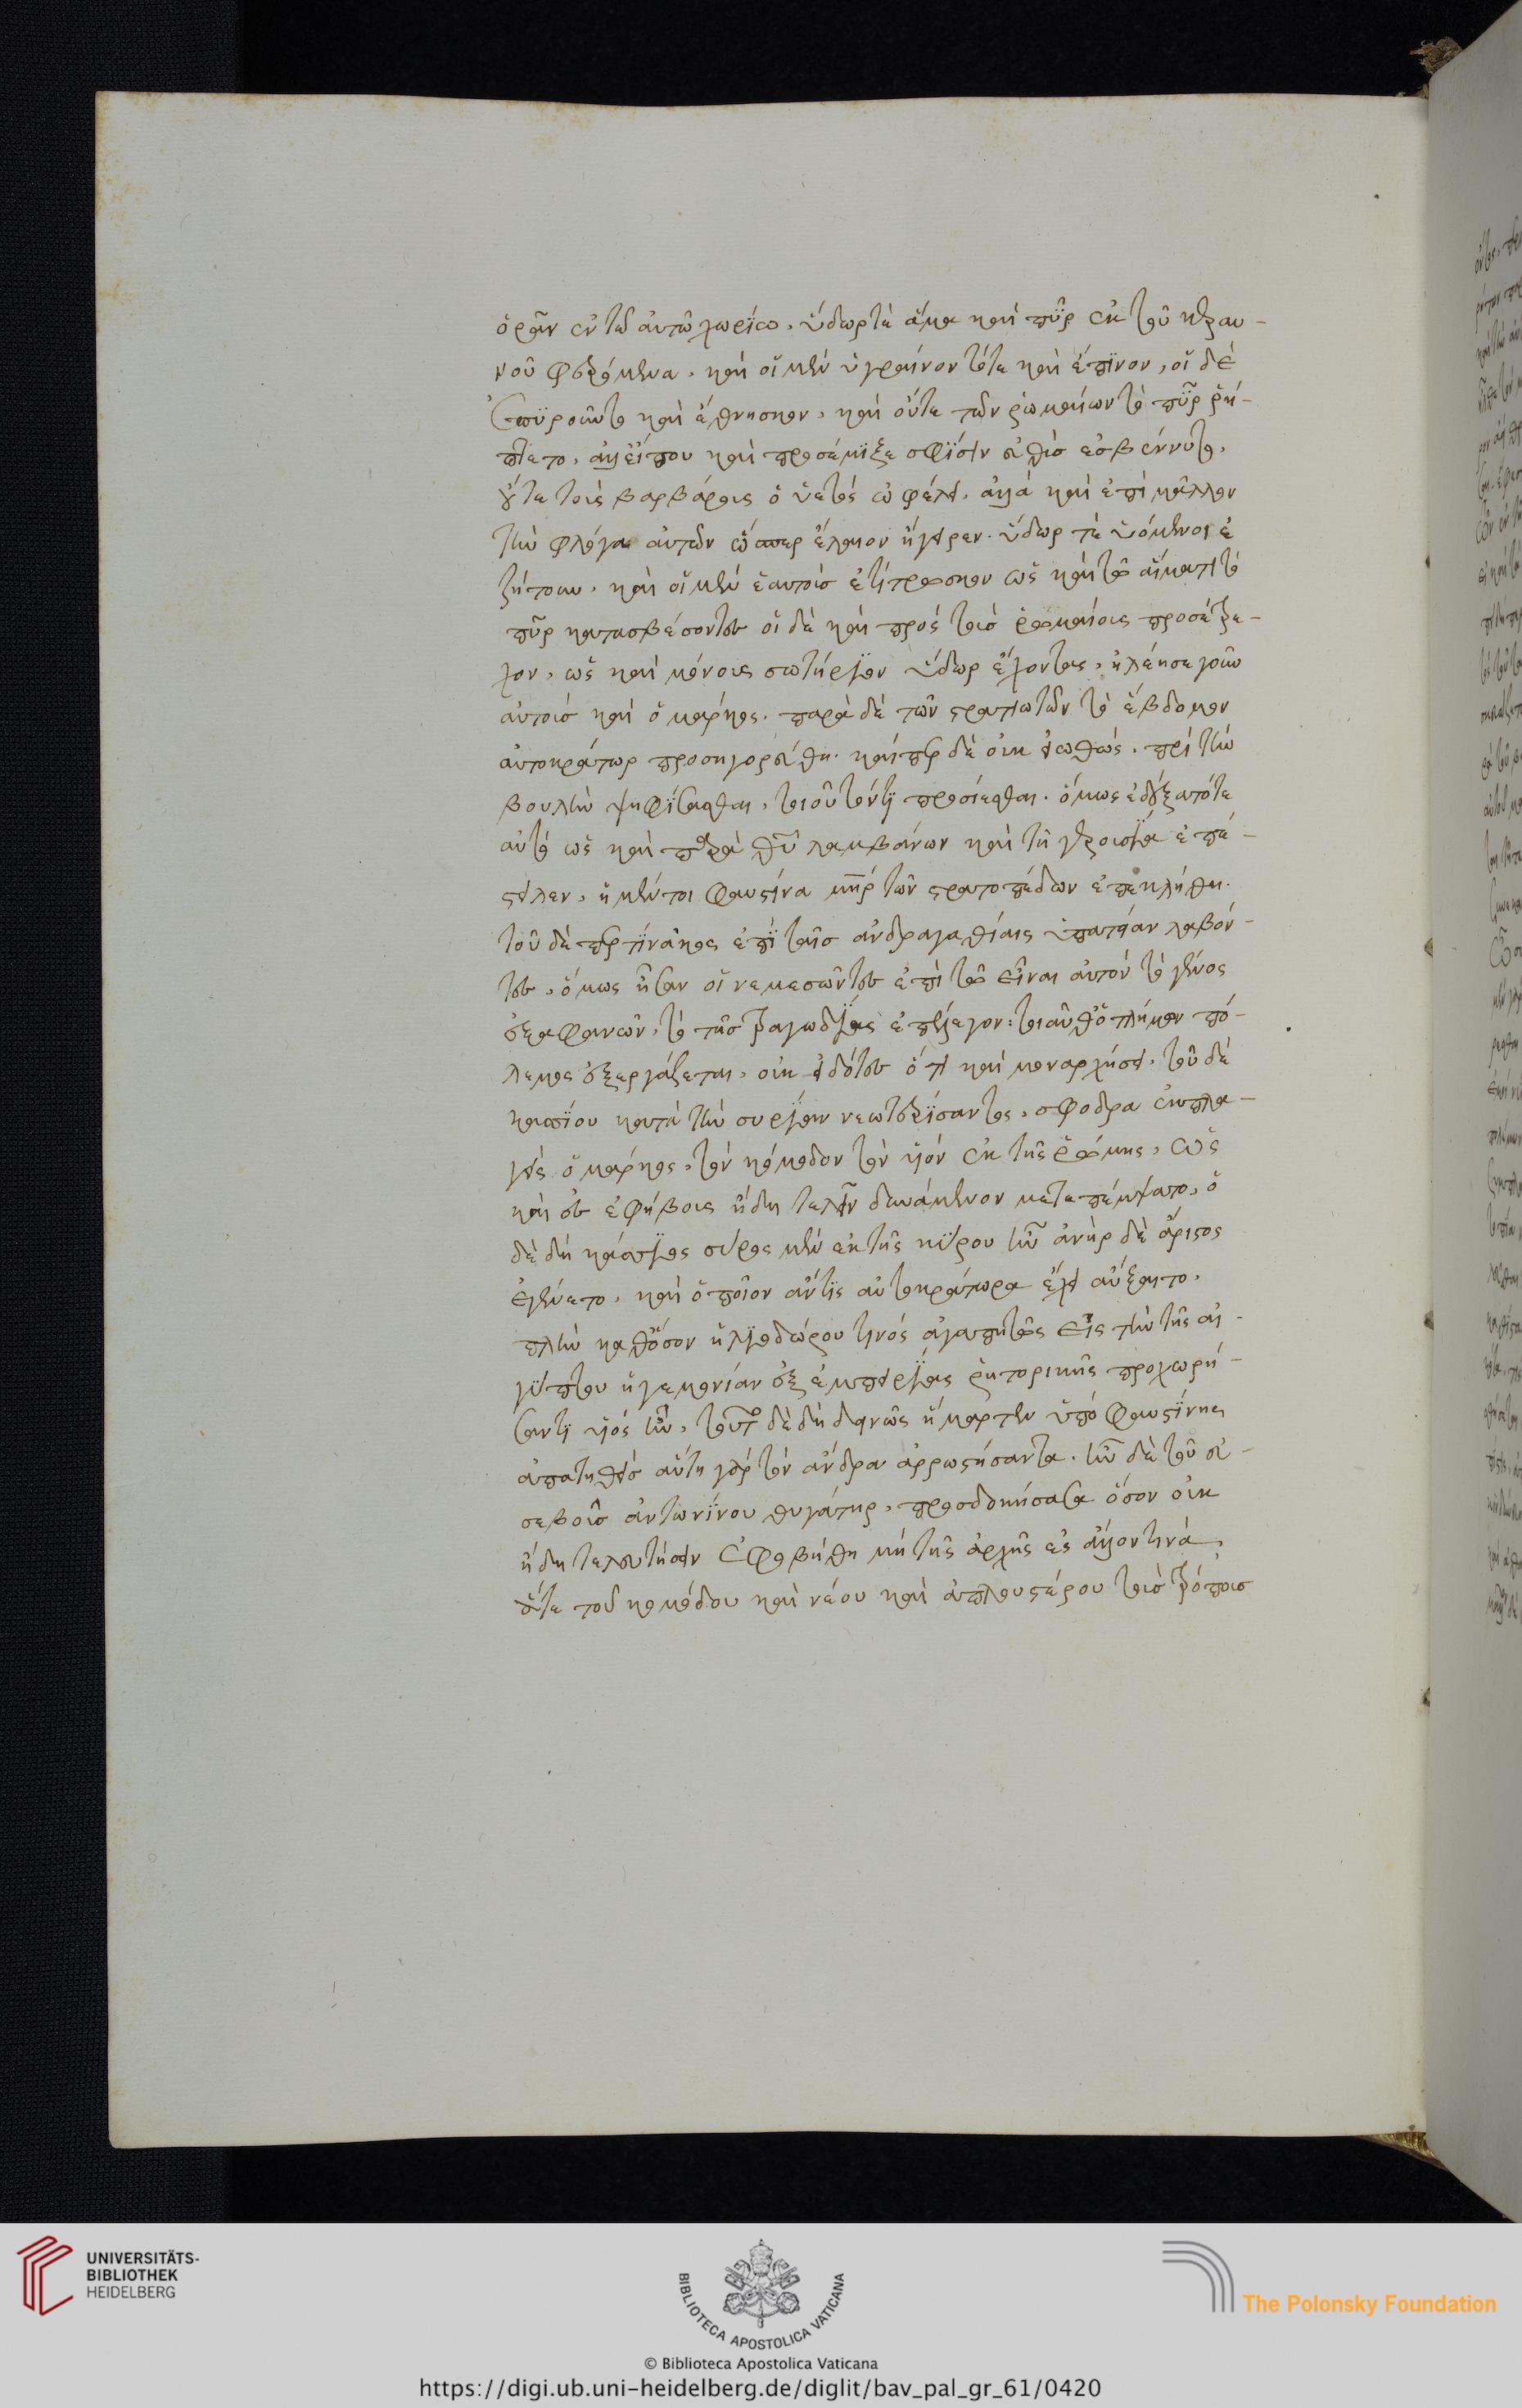 ὁρᾶν ἐν τῶ αὐτῶ χωρίω. ὕδωρ τὲ ἅμα καὶ πῦρ ἐκ τοῦ κεραυ-
νοῦ φερόμενα. καὶ οἱ μὲν ὑγραίνοντό τε καὶ ἔπινον, οἱ δὲ
ἐπυροῦντο καὶ ἔθνησκον. καὶ οὔτε τῶν ῥωμαίων τὸ πῦρ ἥ-
πτετο. ἀλλ' εἴ που καὶ προσέμιξε σφίσιν εὐθὺς ἐσβέννυτο.
οὔτε τοὺς βαρβάρους ὁ ὑετὸς ὠφέλει. ἀλλὰ καὶ ἐπὶ μᾶλλον
τὴν φλόγα αὐτῶν ὥσπερ ἔλαιον ἤγειρεν. ὕδωρ τὲ ὑόμενοι ἐ
ζήτουν. καὶ οἱ μὲν ἑαυτοὺς ἐτίτρωσκον ὡς καὶ τῶ αἵματι τὸ
πῦρ κατασβέσοντες οἱ δὲ καὶ πρὸς τοὺς ῥωμαίους προσέτρε-
χον, ὡς καὶ μόνους σωτήριον ὕδωρ ἔχοντας. ἠλέησε γοῦν
αὐτοὺς καὶ ὁ μάρκος. παρὰ δὲ τῶν στρατιωτῶν τὸ ἕβδομον
αὐτοκράτωρ προσηγορεύθη. καίπερ δὲ οὐκ εἰωθώς. πρὶν τὴν
βουλὴν ψηφίσασθαι, τοιοῦτόν τι προσίεσθαι. ὅμως ἐδέξατό τε
αὐτὸ ὡς καὶ παρὰ θεοῦ λαμβάνων καὶ τῆ γερουσία ἐπέ-
στειλεν. ἡ μέντοι φαυστίνα μήτηρ τῶν στρατοπέδων ἐπεκλήθη.
τοῦ δὲ περτίνακος ἐπὶ ταῖς ἀνδραγαθίαις ὑπατείαν λαβόν-
τος. ὅμως ἦσαν οἱ νεμεσῶντες ἐπὶ τῶ εἶναι αὐτὸν τὸ γένος
ἐξ ἀφανῶν. τὸ τῆς τραγωδίας ἐπέλεγον: τοιαῦθ' ὁ τλήμων πό-
λεμος ἐξεργάζεται. οὐκ εἰδότες ὅτι καὶ μοναρχήσει. τοῦ δὲ
κασσίου κατὰ τὴν συρίαν νεωτερίσαντος. σφόδρα ἐκπλα-
γεὶς ὁ μάρκος. τὸν κόμοδον τὸν υἱὸν ἐκ τῆς ῥώμης. ὡς
καὶ ἐς ἐφήβους ἤδη τελεῖν δυνάμενον μετεπέμψατο. ὁ
δὲ δὴ κάσσιος σύρος μὲν ἐκ τῆς κύρου ἦν ἀνὴρ δὲ ἄριστος
ἐγένετο. καὶ ὁποῖον ἄν τις αὐτοκράτορα ἔχειν εὔξαιτο.
πλὴν καθ' ὅσον ἡλιοδώρου τινὸς ἀγαπητῶς εἰς τὴν τῆς αἰ-
γύπτου ἡγεμονίαν ἐξ ἐμπειρίας ῥητορικῆς προχωρή-
σαντι υἱὸς ἦν. τοῦτο δὲ δὴ δεινῶς ἥμαρτεν ὑπὸ φαυστίνης
ἀπατηθεὶς αὕτη γὰρ τὸν ἄνδρα ἀρρωστήσαντα. ἦν δὲ τοῦ εὐ-
σεβοῦς ἀντωνίνου θυγάτηρ. προσδοκήσασα ὅσον οὐκ
ἤδη τελευτήσειν ἐφοβήθη μὴ τῆς ἀρχῆς ἐς ἄλλον τινά,
ἅτε τοῦ κομόδου καὶ νέου καὶ ἁπλουστέρου τοὺς τρόπους
UNIVERSITÄTS-
BIBLIOTHEK
HEIDELBERG
BIBLIOTECA APOSTOLICA VATICANA
The Polonsky Foundation
© Biblioteca Apostolica Vaticana
https://digi.ub.uni-heidelberg.de/diglit/bav_pal_gr_61/0420